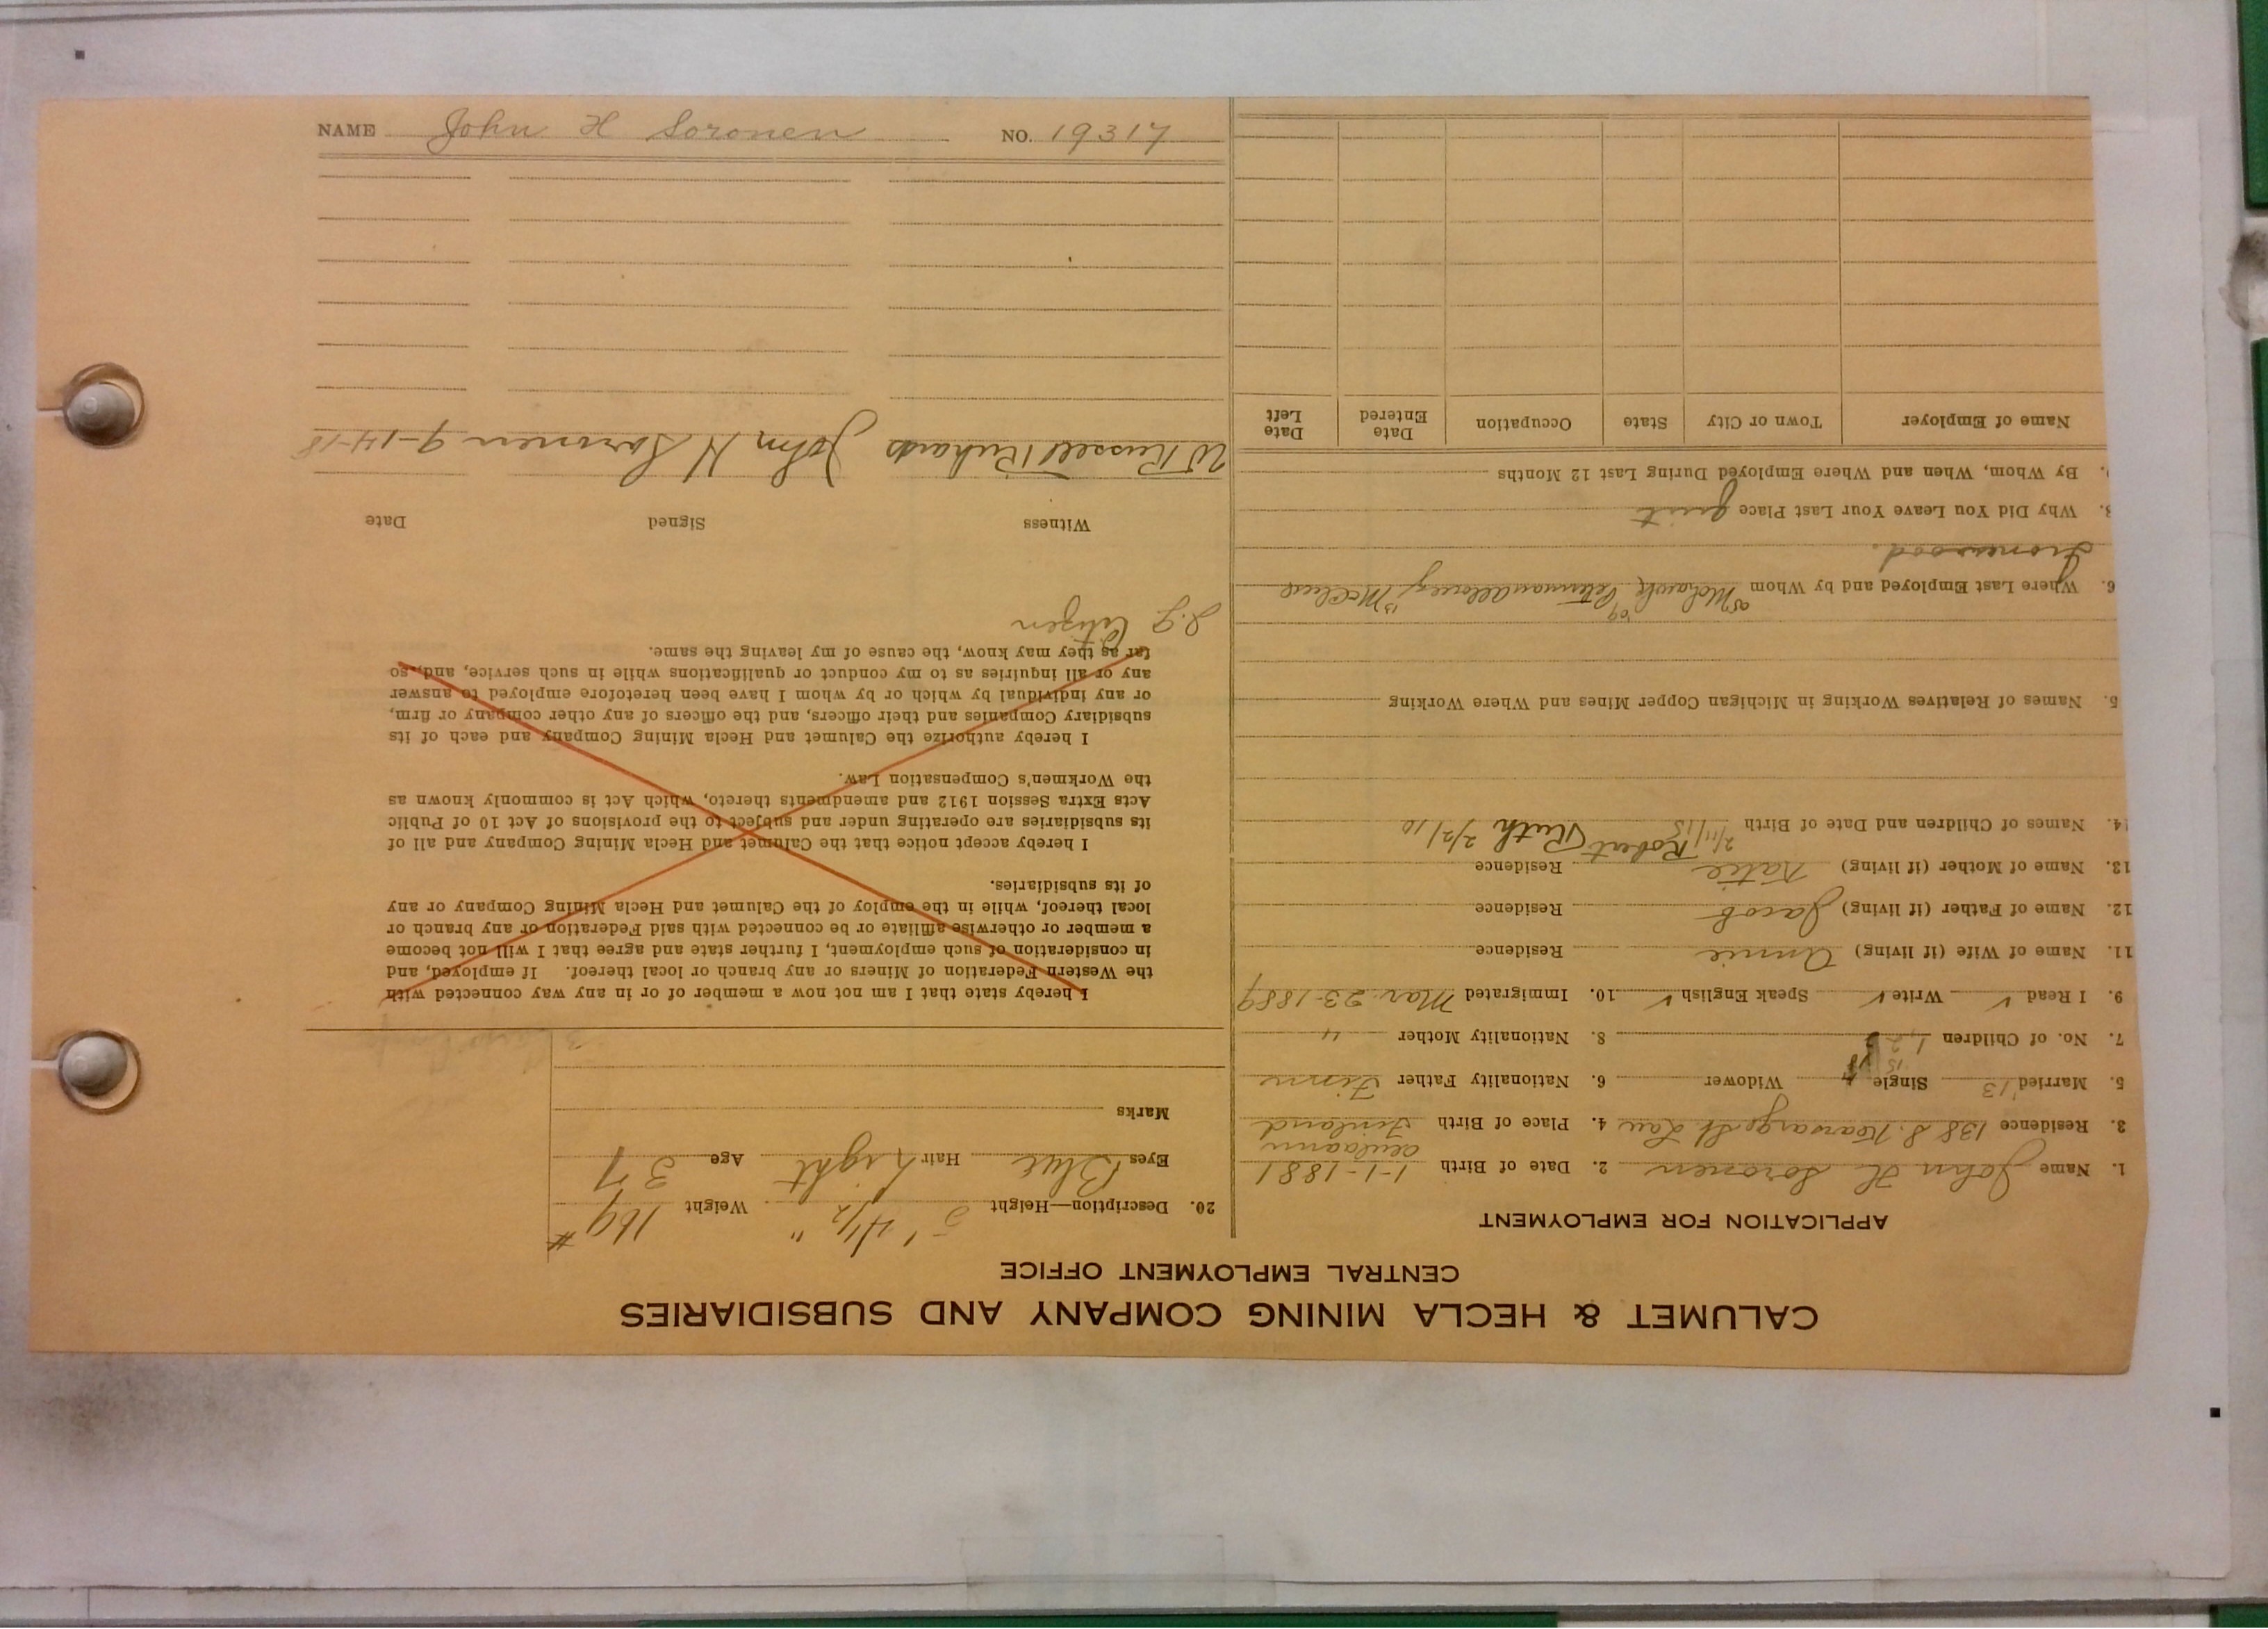 CALUMET & HECLA MINING COMPANY AND SUBSIDIARIES
CENTRAL EMPLOYMENT OFFICE
APPLICATION FOR EMPLOYMENT
1. Name John H. Soronen 2. Date of Birth 1-1-1881
3. Residence 138 S. Kearsarge St Lau 4. Place of Birth Finland
5. Married '13 Single Widower 6. Nationality Father Finn
7. No. of Children 8. Nationality Mother "
9. I Read ✓ Write ✓ Speak English ✓ 10. Immigrated Mar. 23-1889
11. Name of Wife (if living) Annie Residence
12. Name of Father (if living) Jacob Residence
13. Name of Mother (if living) Katie Residence
14. Names of Children and Date of Birth Robert 2/11/15 Ruth 2/2/10
5. Names of Relatives Working in Michigan Copper Mines and Where Working
6. Where Last Employed and by Whom Mohawk
Ironwood.
8. Why Did You Leave Your Last Place quit
9. By Whom, When and Where Employed During Last 12 Months
Name of Employer Town or City State Occupation Date Entered Date Left
20. Description—Height 5' 4 1/2" Weight 169 #
Eyes Blue Hair Light Age 37
Marks
I hereby state that I am not now a member of or in any way connected with
the Western Federation of Miners or any branch or local thereof. If employed, and
in consideration of such employment, I further state and agree that I will not become
a member or otherwise affiliate or be connected with said Federation or any branch or
local thereof, while in the employ of the Calumet and Hecla Mining Company or any
of its subsidiaries.
I hereby accept notice that the Calumet and Hecla Mining Company and all of
its subsidiaries are operating under and subject to the provisions of Act 10 of Public
Acts Extra Session 1912 and amendments thereto, which Act is commonly known as
the Workmen's Compensation Law.
I hereby authorize the Calumet and Hecla Mining Company and each of its
subsidiary Companies and their officers, and the officers of any other company or firm,
or any individual by which or by whom I have been heretofore employed to answer
any or all inquiries as to my conduct or qualifications while in such service, and, so
far as they may know, the cause of my leaving the same.
Citizen
Witness Signed Date
W Russell Richards John H Soronen 9-14-18
NAME John H Soronen NO. 19317